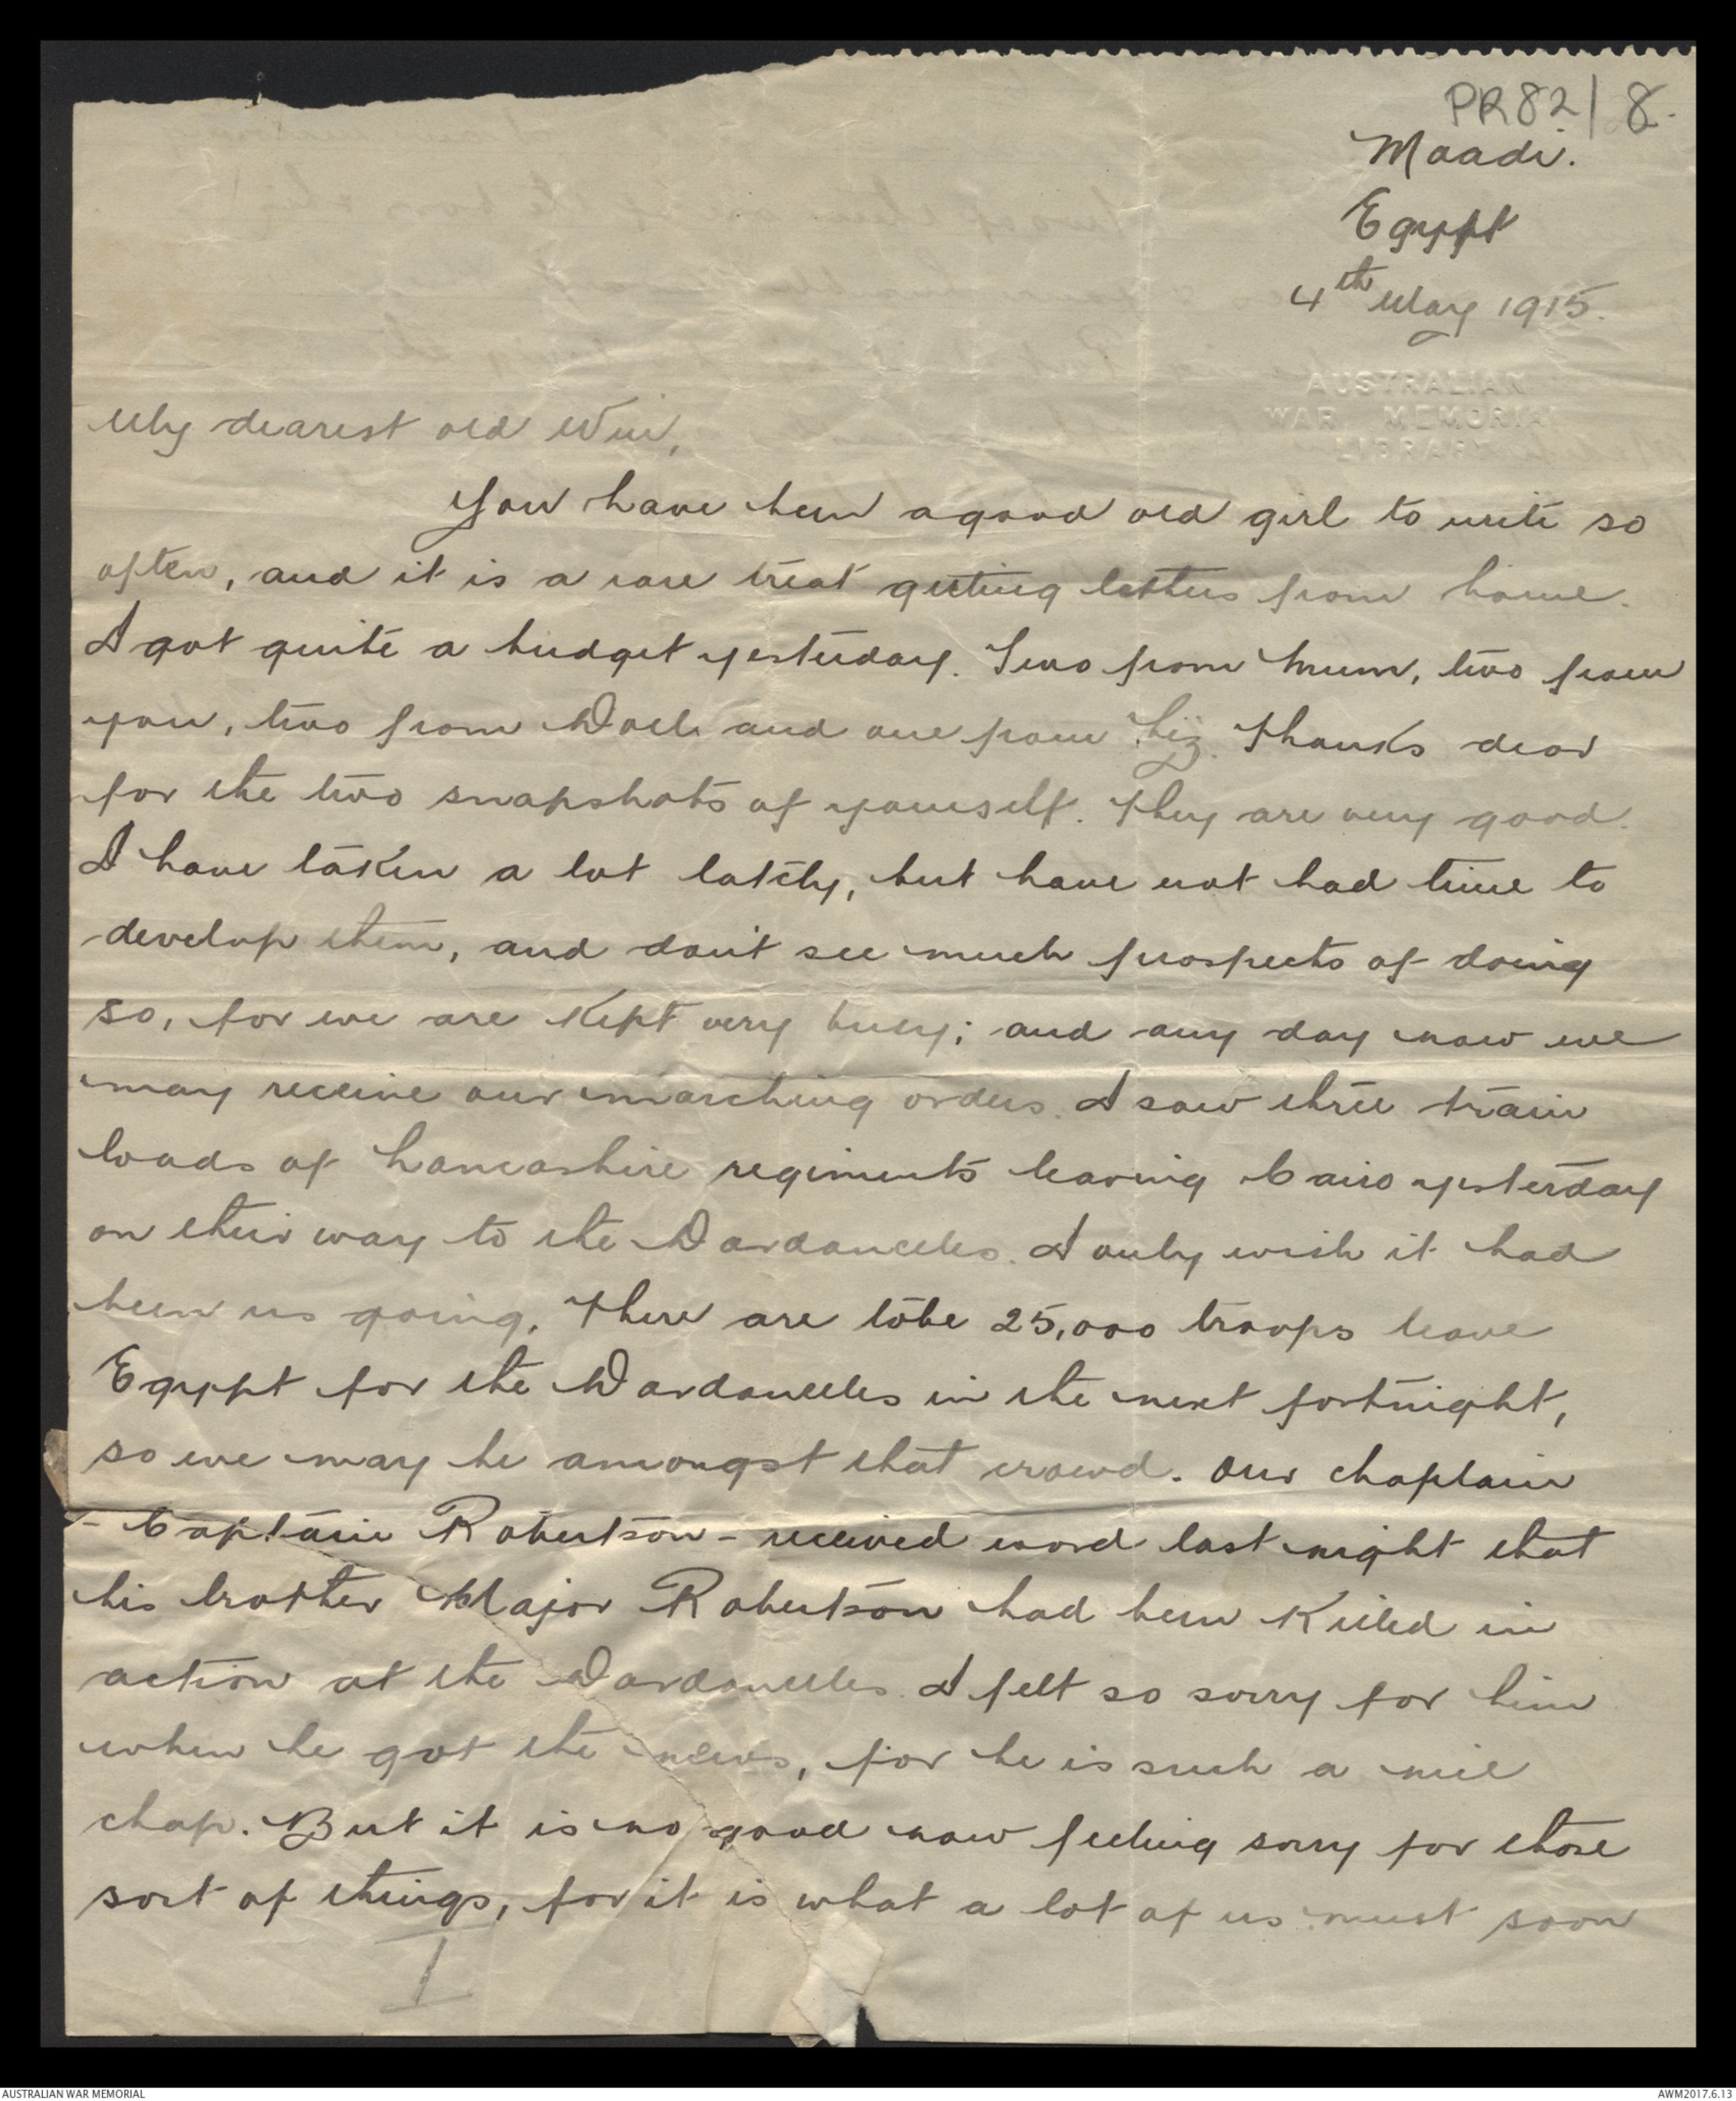 PR82/8.
Maadi.
Egypt
4th May 1915.
AUSTRALIAN
WAR MEMORIAL
LIBRARY
My dearest old Win,
You have been a good old girl to write so
often, and it is a rare treat getting letters from home.
I got quite a budget yesterday. Two from Mum, two from
you, two from Doll and one from Liz. Thanks dear
for the two snapshots of yourself. They are very good.
I have taken a lot lately, but have not had time to
develop them, and don't see much prospects of doing
so, for we are kept very busy; and any day now we
may receive our marching orders. I saw three train
loads of Lancashire regiments leaving Cairo yesterday
on their way to the Dardanelles. I only wish it had
been us going. There are to be 25,000 troops leave
Egypt for the Dardanelles in the next fortnight,
so we may be amongst that crowd. Our chaplain
- Captain Robertson - received word last night that
his brother Major Robertson had been killed in
action at the Dardanelles. I felt so sorry for him
when he got the news, for he is such a nice
chap. But it is no good now feeling sorry for those
sort of things, for it is what a lot of us must soon
I
AUSTRALIAN WAR MEMORIAL
AWM2017.6.13